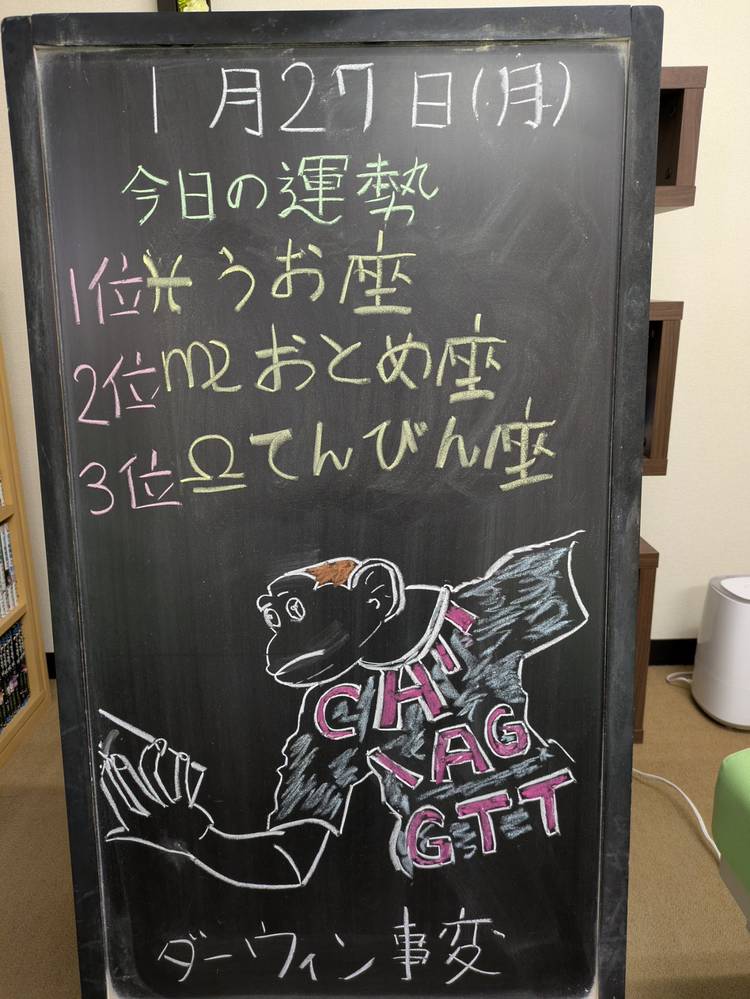 1月27日(月)
今日の運勢
1位♓うお座
2位♍おとめ座
3位♎てんびん座
CHI
AG
GTT
ダーウィン事変